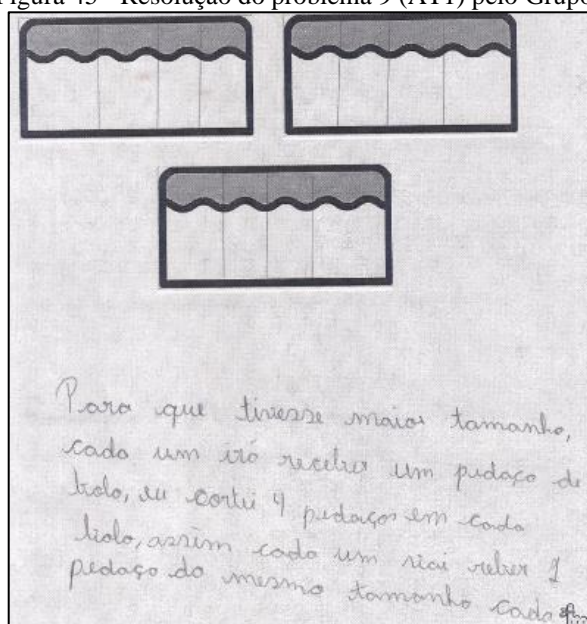 Figura 45 - Resolução do problema 9 (AT1) pelo Grupo
Para que tivesse maior tamanho,
cada um irá receber um pedaço de
bolo, eu cortei 4 pedaços em cada
bolo, assim cada um vai reber 1
pedaço do mesmo tamanho cada